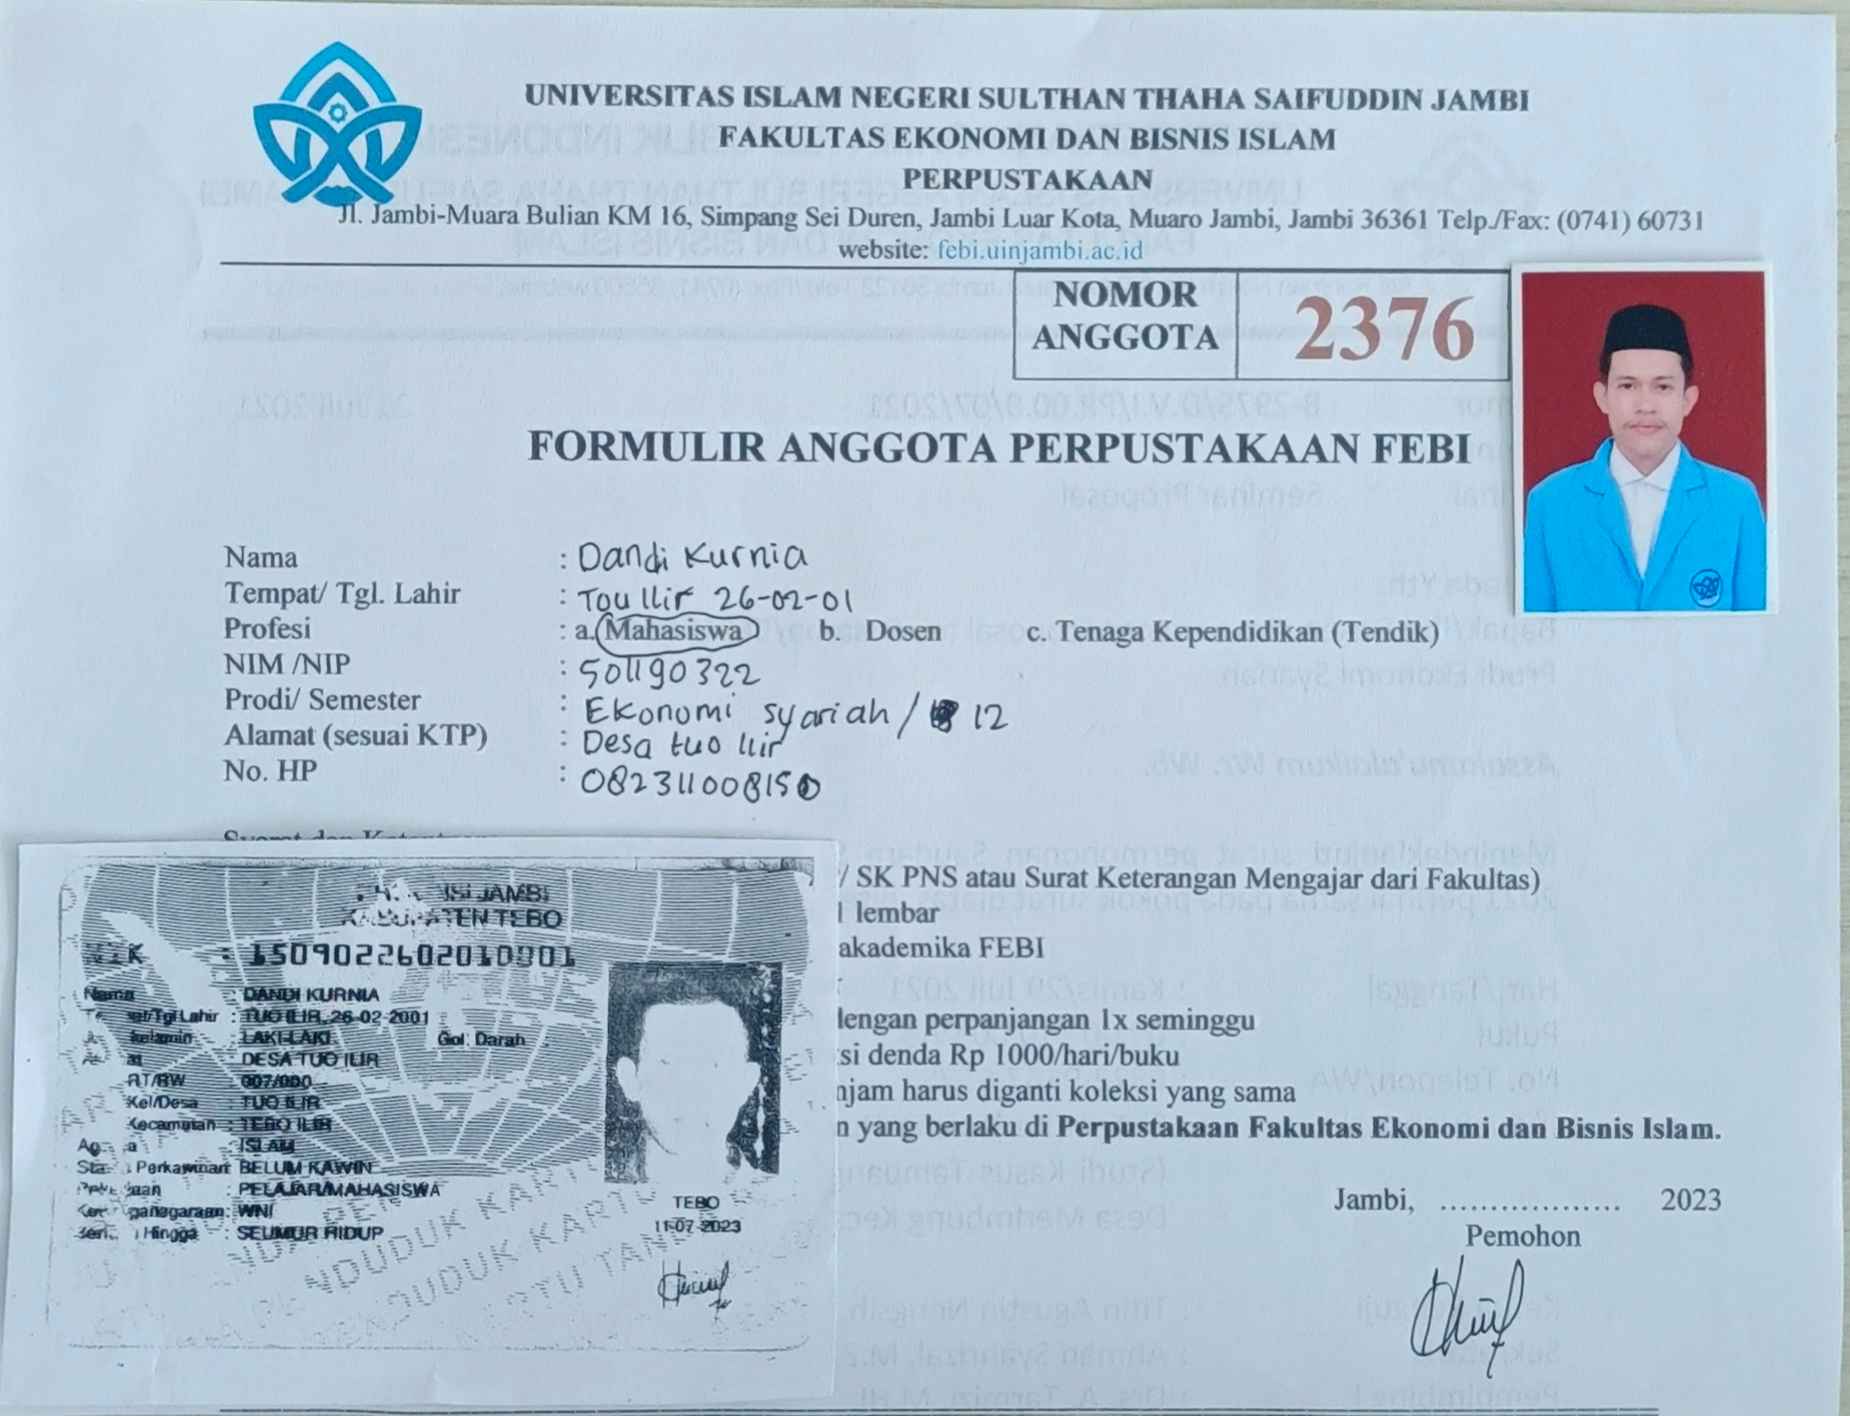 UNIVERSITAS ISLAM NEGERI SULTHAN THAHA SAIFUDDIN JAMBI
FAKULTAS EKONOMI DAN BISNIS ISLAM
PERPUSTAKAAN
Jl. Jambi-Muara Bulian KM 16, Simpang Sei Duren, Jambi Luar Kota, Muaro Jambi, Jambi 36361 Telp./Fax: (0741) 60731
website: febi.uinjambi.ac.id
NOMOR ANGGOTA 2376
FORMULIR ANGGOTA PERPUSTAKAAN FEBI
Nama : Dandi Kurnia
Tempat/ Tgl. Lahir : Tou Ilir 26-02-01
Profesi : a. Mahasiswa b. Dosen c. Tenaga Kependidikan (Tendik)
NIM /NIP : 501190322
Prodi/ Semester : Ekonomi syariah / 12
Alamat (sesuai KTP) : Desa tuo Ilir
No. HP : 082311008150
/ SK PNS atau Surat Keterangan Mengajar dari Fakultas)
lembar
akademika FEBI
dengan perpanjangan 1x seminggu
si denda Rp 1000/hari/buku
njam harus diganti koleksi yang sama
n yang berlaku di Perpustakaan Fakultas Ekonomi dan Bisnis Islam.
Jambi, .................. 2023
Pemohon
JAMBI
KABUPATEN TEBO
NIK : 1509022602010001
Nama : DANDI KURNIA
Lahir : TUO ILIR, 26-02-2001
: LAKI-LAKI Gol. Darah :
: DESA TUO ILIR
RT/RW : 007/000
Kel/Desa : TUO ILIR
Kecamatan : TEBO ILIR
: ISLAM
Perkawinan: BELUM KAWIN
: PELAJAR/MAHASISWA
: WNI
Hingga : SEUMUR HIDUP
TEBO
11-07-2023